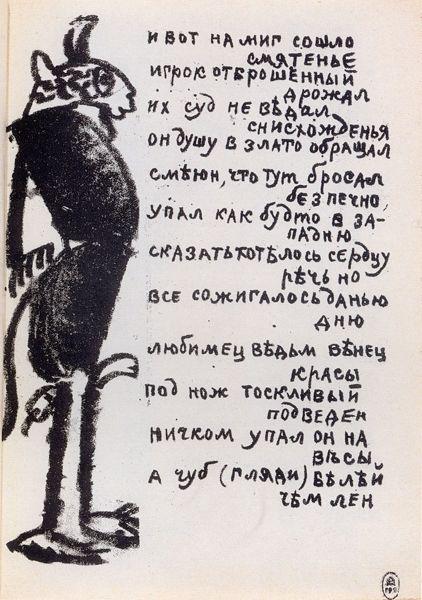 и вот на миг сошло
смятенье
игрок отброшенный
дрожал
их суд не вѣдал
снисхожденья
он душу в злато обращал
смѣюн, что тут бросал
безпечно,
упал как будто в за-
падню
сказать хотѣлось сердцу
рѣчь но
все сожигалось данью
дню
любимец вѣдьм вѣнец
красы
под нож тоскливый
подведен
ничком упал он на
вѣсы,
а чуб (гляди) бѣлѣй
чѣм лен